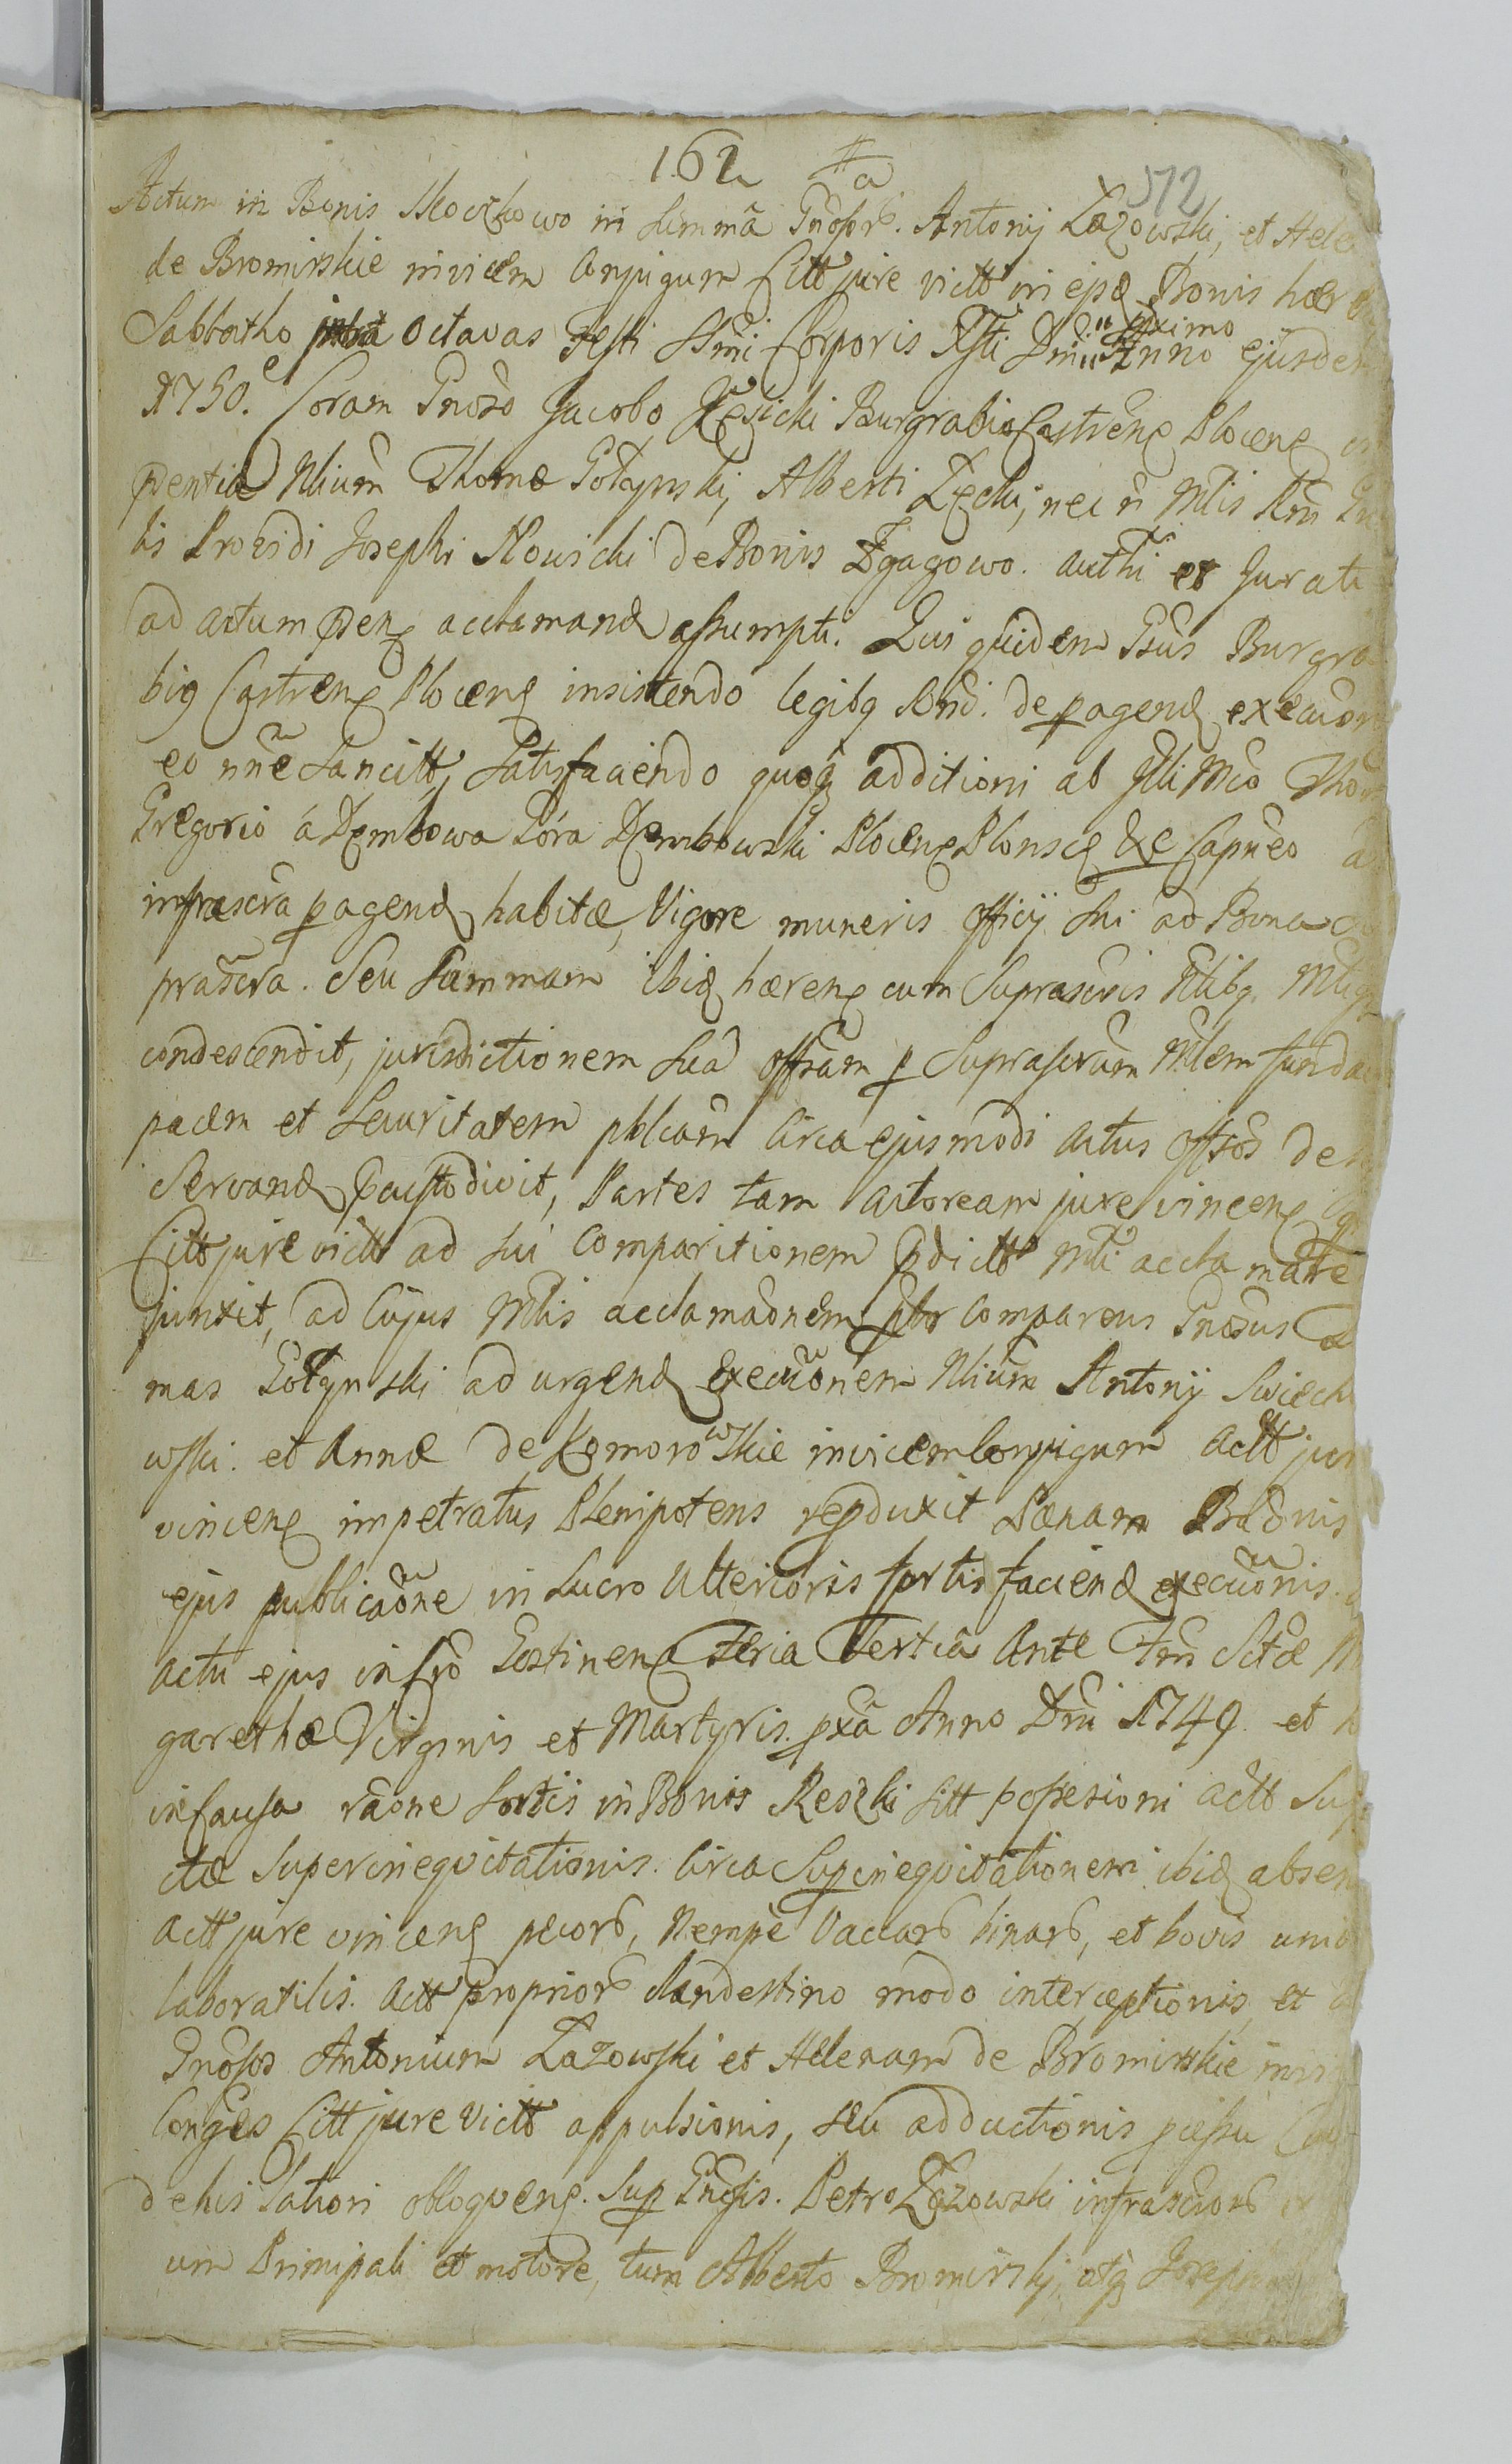 162 a
572
Actum in Bonis Moczkowo in Summâ Gnõsor. Antonij Łazowski, et Hele
de Bromirskie invicem Conjugum Citt jure victt in ejsd Bonis haer
Sabbatho intra Octavas Festi Ssmi Corporis Xsti Dñi pximo Anno ejusdem
1750. Coram Gnoso Jacobo Kęsicki Burgrabio Castrenę Plocenę
pñentia Nlium Thomæ Gołynski, Alberti Łęcki, nec ñ Mlis Rñi
lis Providi Josephi Nowicki de Bonis Zgagowo authi et Jurati
ad actum pñenę acclamand assumpti. Qui quidem Gsus Burgra
big Castrenę Plocenę insistendo legibg Rñdi. de pagend execuõn
eo nñe Sancitt, Satisfaciendo quoq additioni ab Illi Mco Tho
Gregorio á Dembowa Góra Dembowski Plocenę Plonscę &c Capneo a
infrascra pagend habitæ, Vigore muneris Officij Sui ad Bona
prascra. Seu Summam ibid hærenę cum Suprascris Nlibg. Mliq
condescendit, jurisdictionem Suã offsam p Suprascrum Mlem funda
pacem et Securitatem pblcam Circa ejusmodi actus offsos de
Servand pcustodivit, Partes tam actoream jure vincenę
Citt jure victt ad Sui Comparitionem pdictt Mli acclamare
junxit, ad Cujus Mlis acclamaõnem pltr comparens Gnosus
mas Gołynski ad urgend Execuõnem Nlium Antonij Swiecho
wski. et Annæ de Komorowskie invicem Conjugum actt jur
vincenę impetratus Plenipotens repduxit Pænam Bãonis
ejus publicaõne in lucro Ulterioris fortis faciend execuõnis.
actu ejus in Cró Gostinenę Feria Tertia Ante Fm Sctæ M
garethæ Virginis et Martyris. pxã Anno Dñi 1749. et
in Causa rãone Sortis in Bonis Reszki Citt possesioni actt Sup
ctæ Superinequitationis. Circa Supinequitationem ibid absen
actt jure vincenę pecoró, Nempe Vaccaró binaró, et bovis unio
laboratilis. actt proprioró clandestino modo interceptionis, et
Gnõsos Antonium Łazowski et Helenam de Bromirskie invi
Conges Citt jure victt appulsionis, seu adductionis pcessu
de his latiori obloqvenę. Sup Gnosis. Petro Łazowski infrascroró
um Principali et motore, tum Alberto Bromirskj, atq Joseph